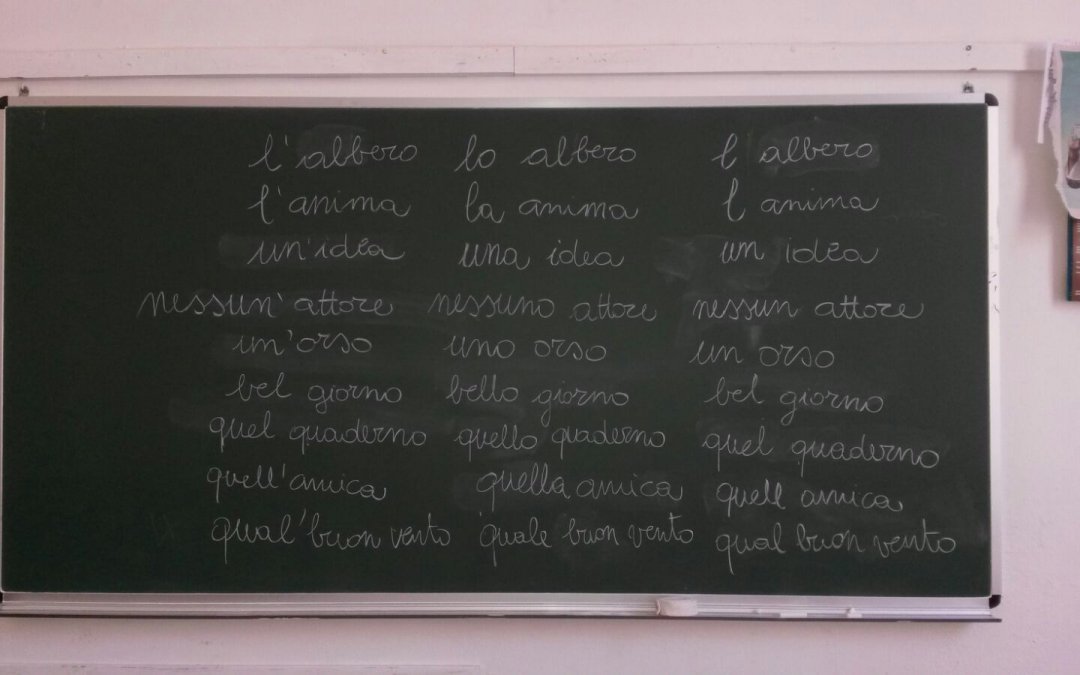 l'albero lo albero l albero
l'anima la anima l anima
un'idea una idea un idea
nessun'attore nessuno attore nessun attore
un'orso uno orso un orso
bel giorno bello giorno bel giorno
quel quaderno quello quaderno quel quaderno
quell'amica quella amica quell amica
qual'buon vento quale buon vento qual buon vento